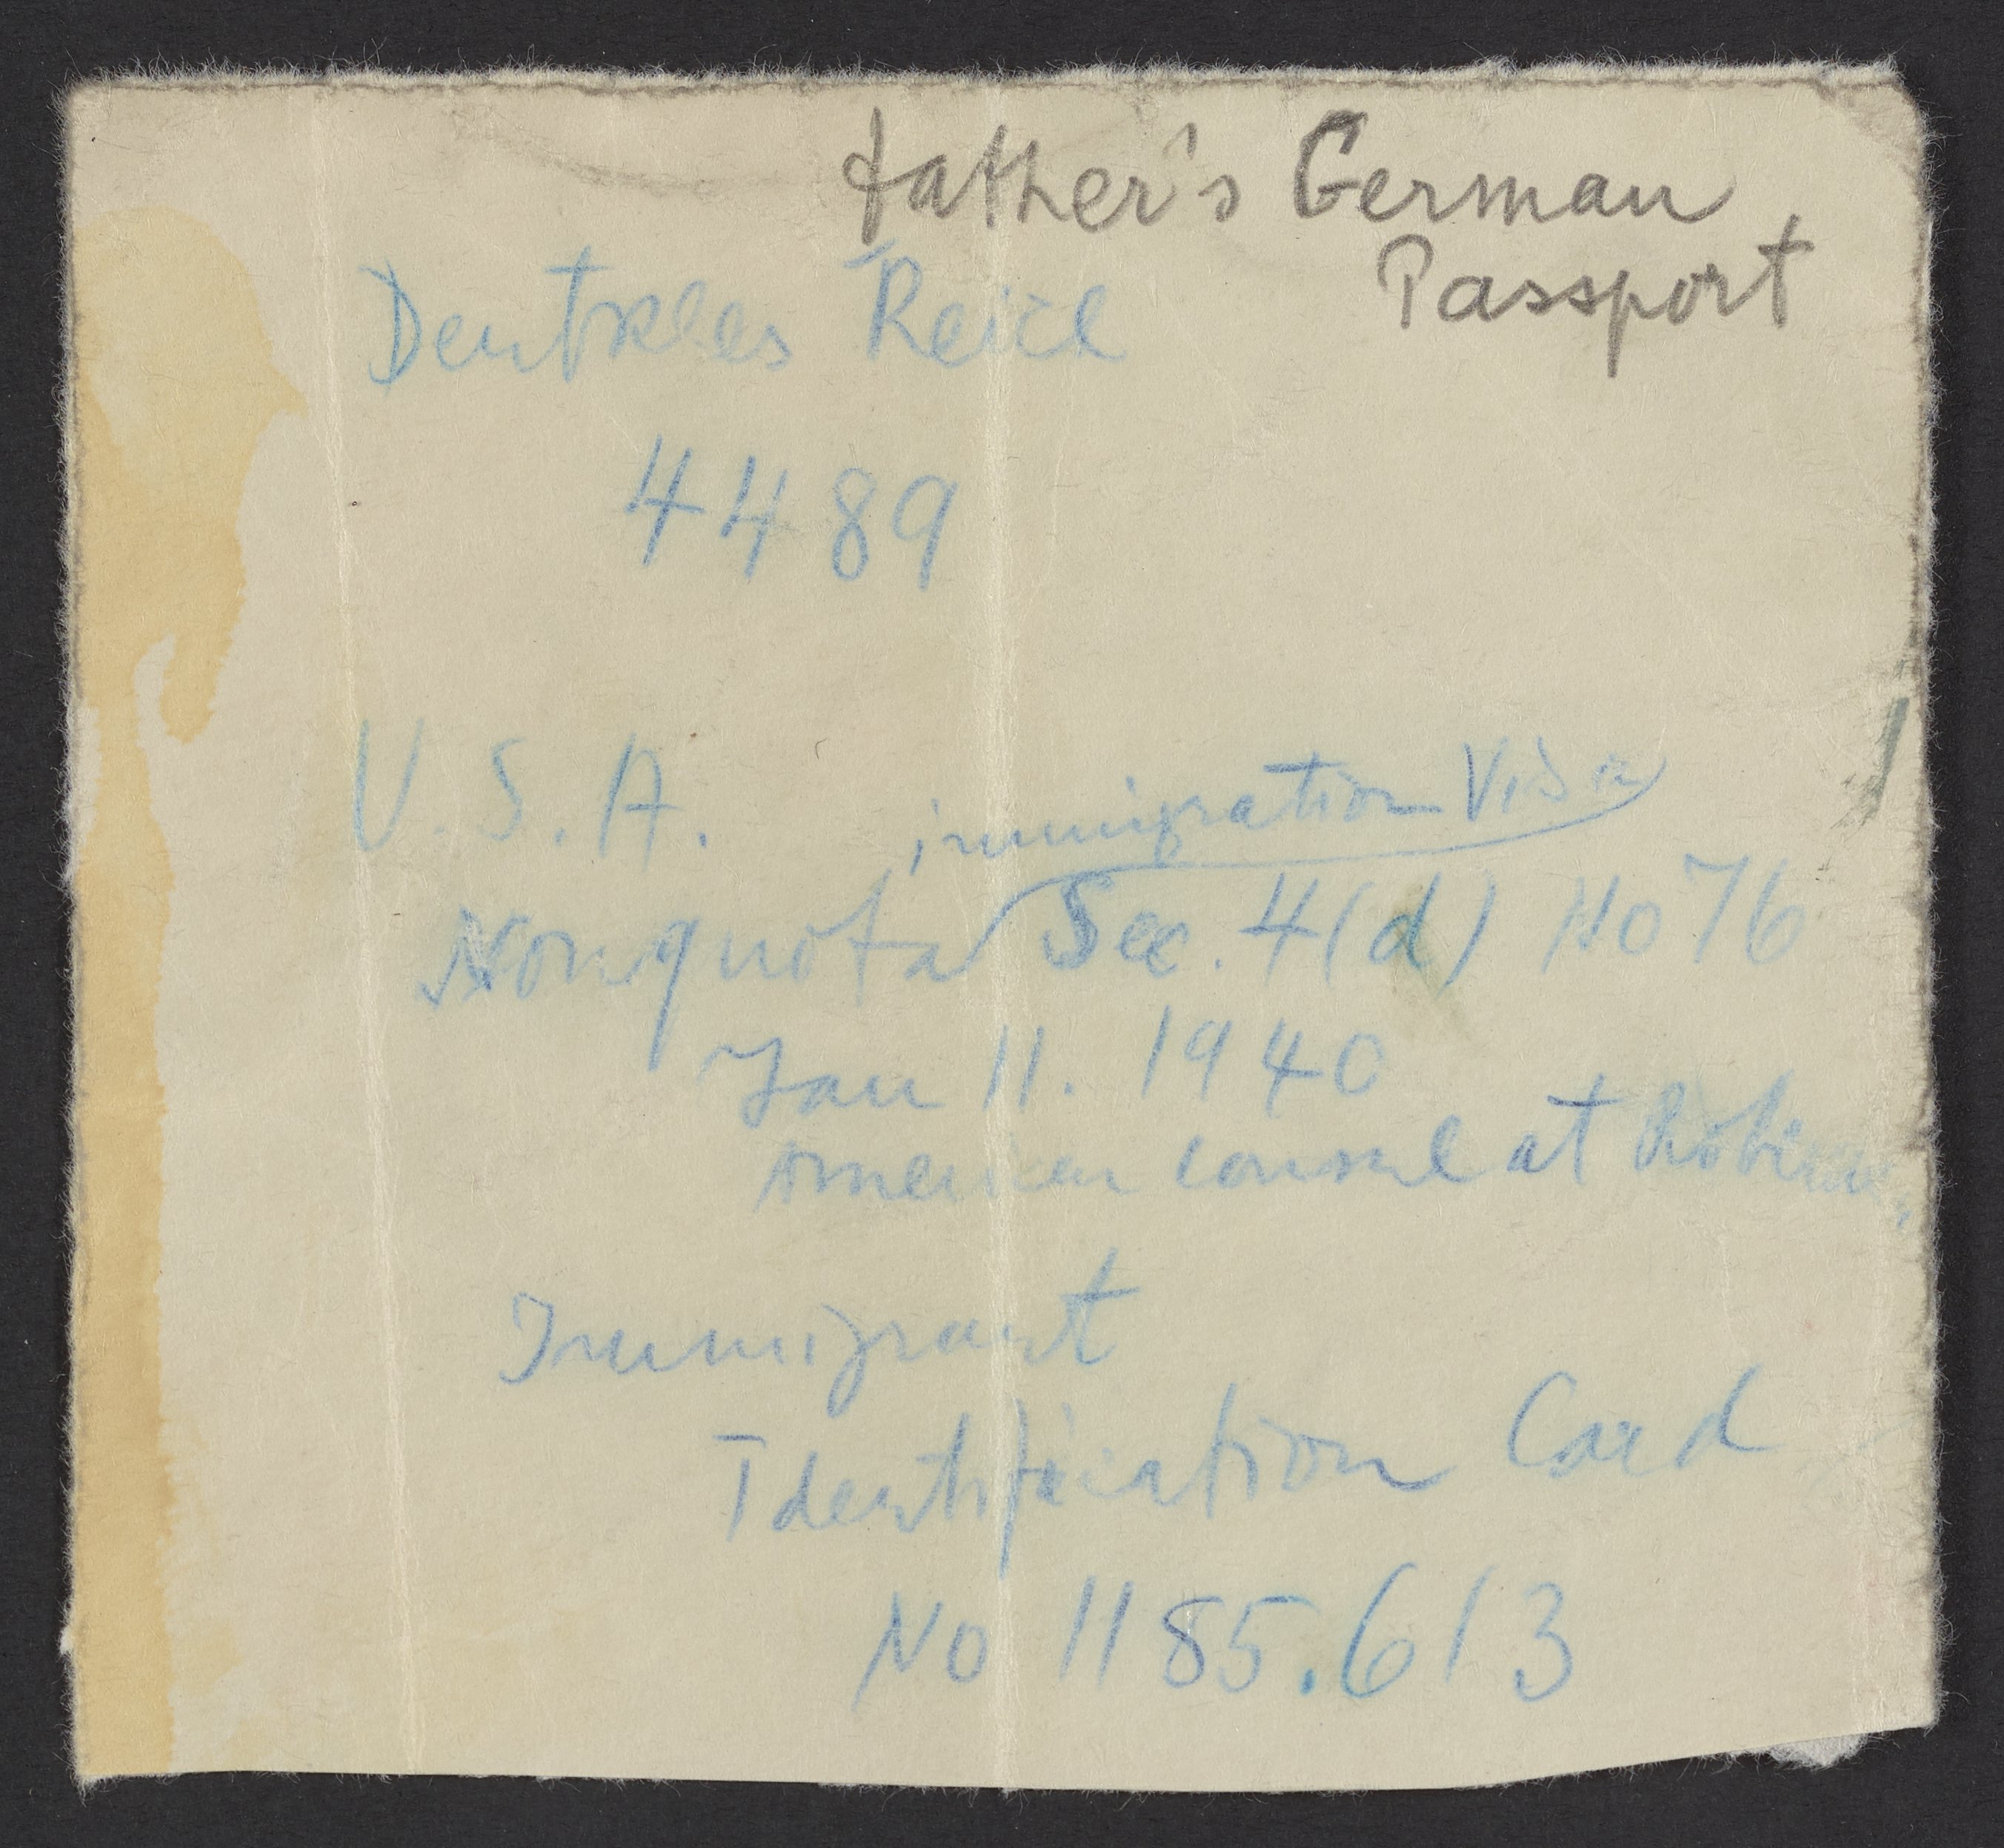 father's German
Passport
Deutsches Reich
4489
U.S.A. immigration Visa
Nonquota Sec. 4(d) No 76
Jan 11. 1940
American Consul at
Immigrant
Identification Card
No 1185.613